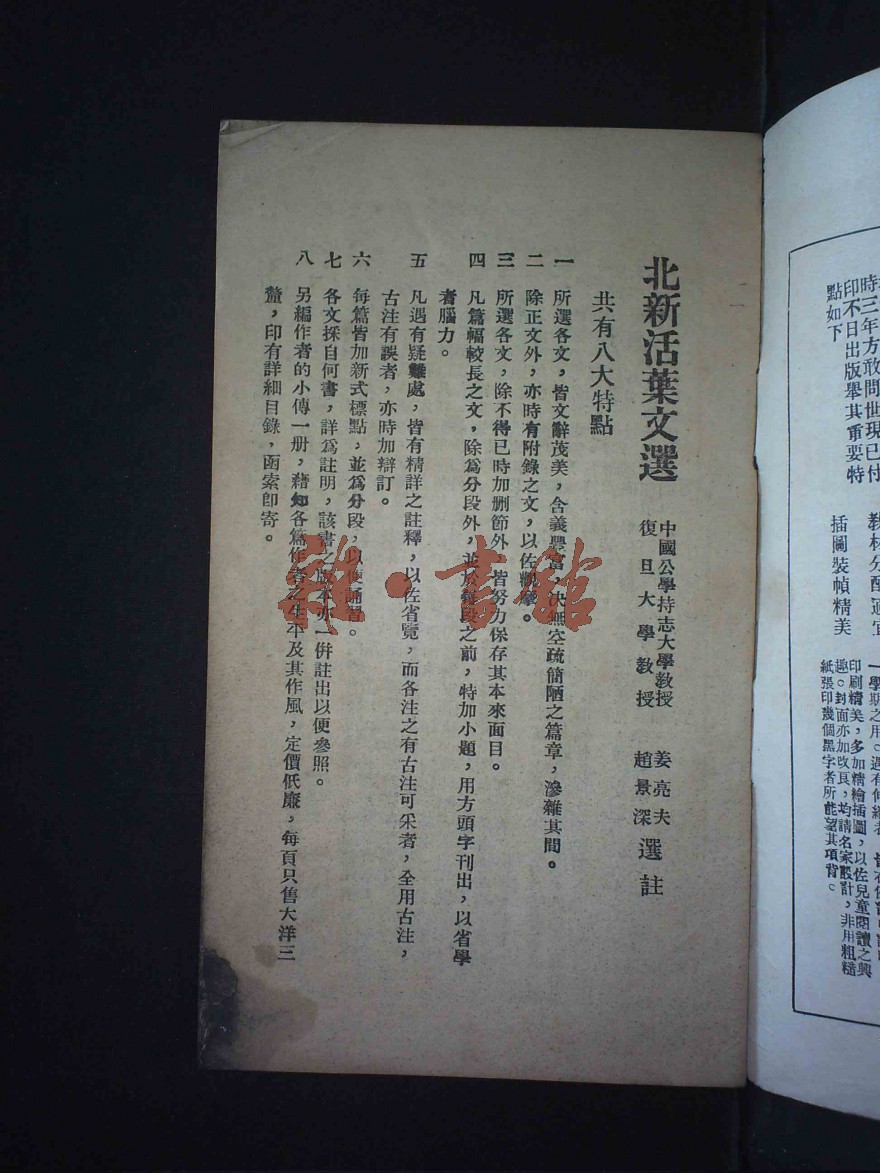 時三年方敢問世現已付
印不日出版舉其重要特
點如下
教材分配適宜
插圖裝幀精美
印刷精美，多加精繪插圖，以佐兒童閱讀之興
趣。封面亦加改良，均請名家設計，非用粗糙
紙張印幾個黑字者所能望其項背。
北新活葉文選
中國公學持志大學教授 姜亮夫
復旦大學教授 趙景深
選註
共有八大特點
一 所選各文，皆文辭茂美，含義豐富，決無空疏簡陋之篇章，滲雜其間。
二 除正文外，亦時有附錄之文，以佐觀摩。
三 所選各文，除不得已時加刪節外，皆努力保存其本來面目。
四 凡篇幅較長之文，除爲分段外，並於每段之前，特加小題，用方頭字刊出，以省學
者腦力。
五 凡遇有疑難處，皆有精詳之註釋，以佐省覽，而各注之有古注可采者，全用古注，
古注有誤者，亦時加辯訂。
六 每篇皆加新式標點，並爲分段，以便誦習。
七 各文採自何書，詳爲註明，該書之版本亦一併註出以便參照。
八 另編作者的小傳一册，藉知各篇作者之生平及其作風，定價低廉，每頁只售大洋三
釐，印有詳細目錄，函索卽寄。
雜·書館